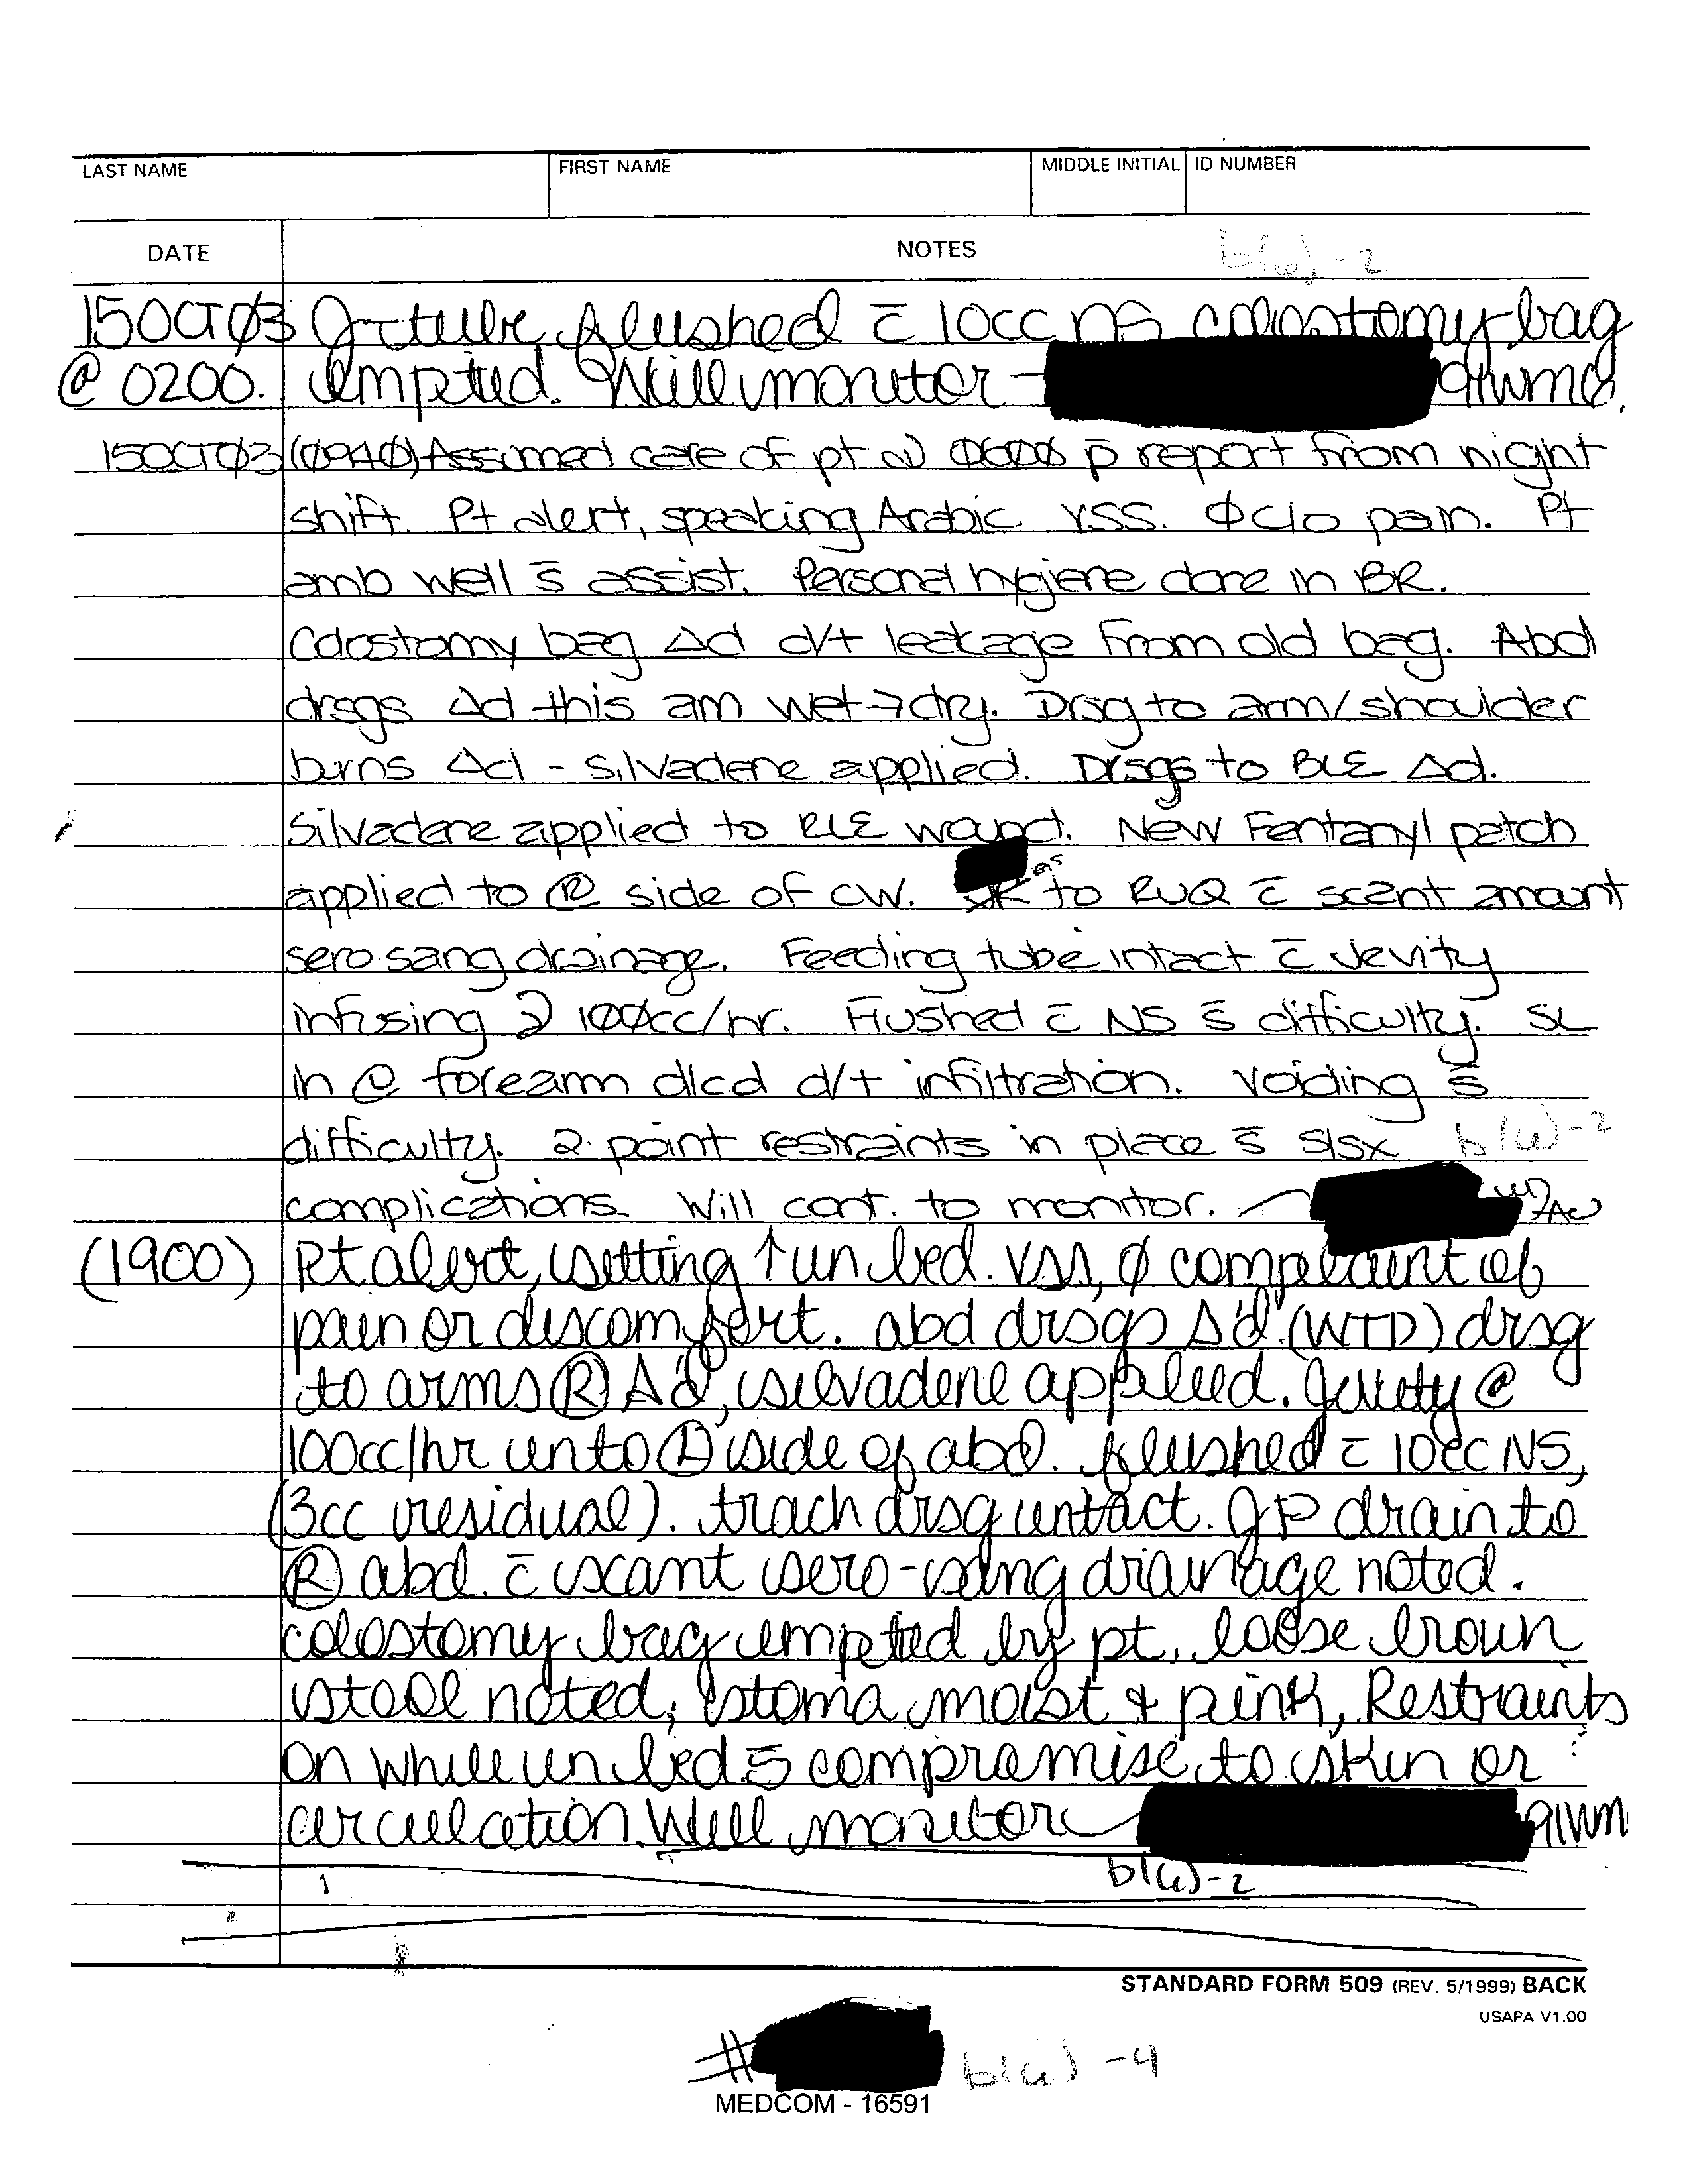 LAST NAME FIRST NAME MIDDLE INITIAL ID NUMBER
DATE NOTES b(6)-2
15OCTØ3 J-tube flushed c̄ 10cc NS colostomy bag
@ 0200. emptied. Will monitor - 91WM6.
15OCTØ3 (Ø94Ø) Assumed care of pt @ Ø6ØØ p̄ report from night
shift. Pt alert, speaking Arabic. VSS. Ø c/o pain. Pt
amb well s̄ assist. Personal hygiene done in BR.
Colostomy bag Δd d/t leakage from old bag. Abd
drsgs Δd this am wet→dry. Drsg to arm/shoulder
burns Δd - Silvadene applied. Drsgs to BLE Δd.
Silvadene applied to RLE wound. New Fentanyl patch
applied to Ⓡ side of CW. to RUQ c̄ scant amount
sero-sang drainage. Feeding tube intact c̄ Jevity
infusing @ 1ØØcc/hr. Flushed c̄ NS s̄ difficulty. SL
in forearm d/cd d/t infiltration. Voiding s̄
difficulty. 2-point restraints in place s̄ s/sx b(6)-2
complications. Will cont. to monitor.
(1900) Pt alert, sitting ↑ in bed. VSS, Ø complaint of
pain or discomfort. abd drsgs Δ'd. (WTD) drsg
to arms Ⓡ Δ'd, silvadene applied. Jevity @
100cc/hr into Ⓛ side of abd. flushed c̄ 10cc NS,
(3cc residual). trach drsg intact. JP drain to
Ⓡ abd. c̄ scant sero-sang drainage noted.
colostomy bag emptied by pt, loose brown
stool noted, stoma moist & pink, Restraints
on while in bed s̄ compromise to skin or
circulation. Will monitor 91WM
b(6)-2
STANDARD FORM 509 (REV. 5/1999) BACK
USAPA V1.00
# b(6)-4
MEDCOM - 16591